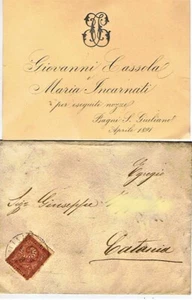 Giovanni Cassola
e
Maria Incarnati
per eseguite nozze
Bagni S. Giuliano
Aprile
Egregio
Sig. Giuseppe
Catania